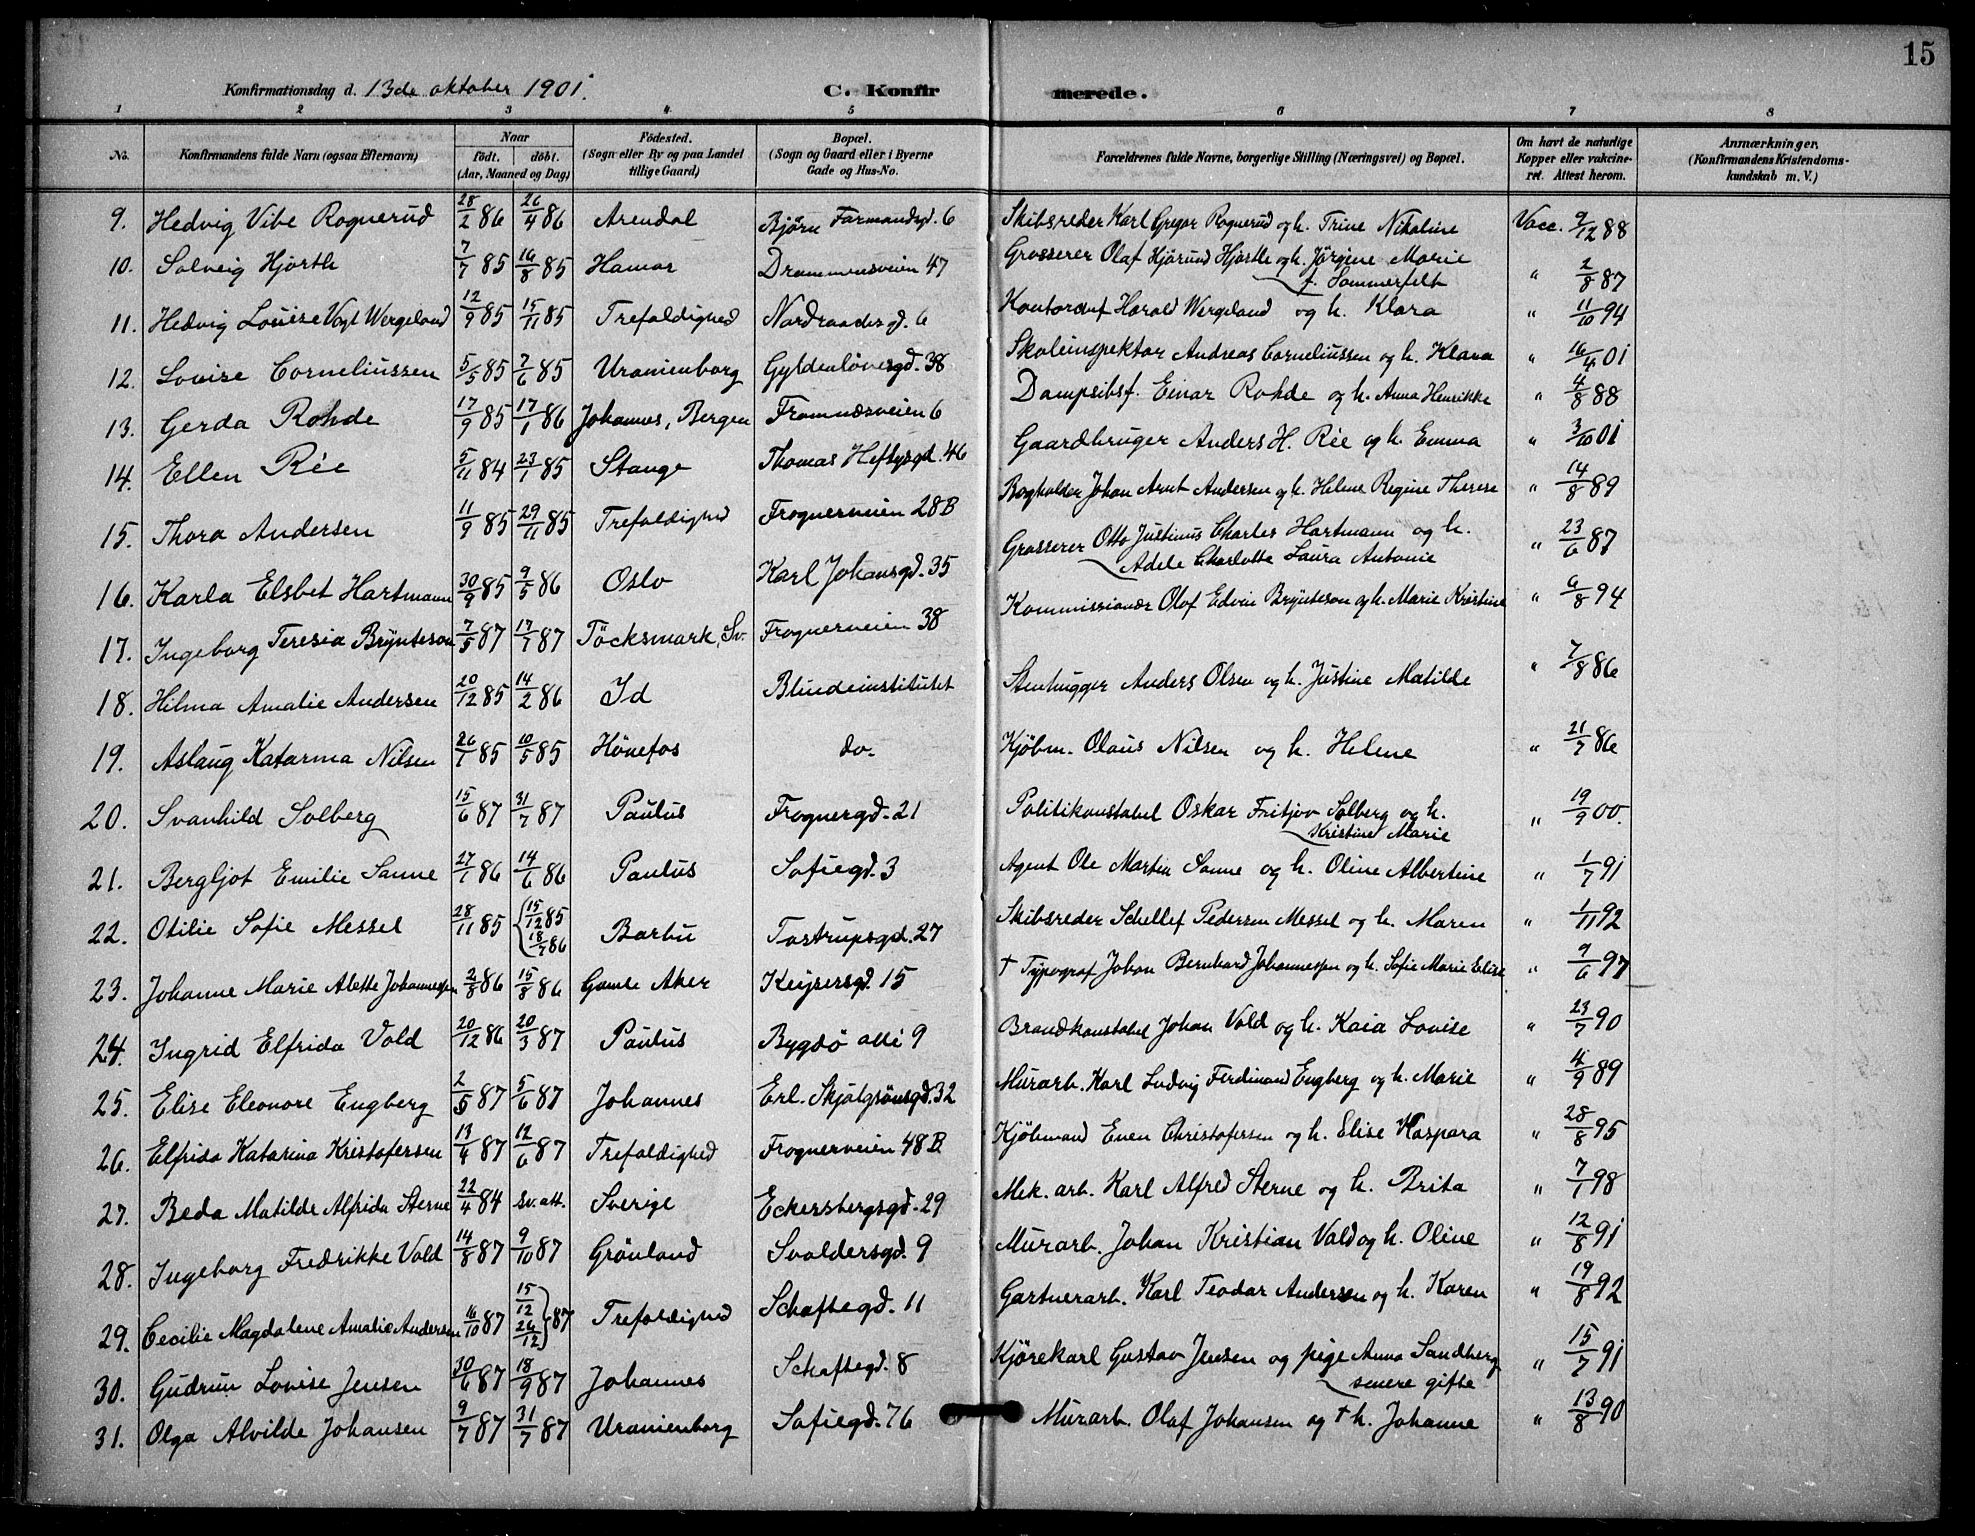 15
Konfirmationsdag d. 13de oktober 1901. C. Konfirmerede.
1 2 3 4 5 6 7 8
No. Konfirmandens fulde Navn (ogsaa Efternavn) Naar født. døbt. (Aar, Maaned og Dag) Fødested. (Sogn eller By og paa Landet tillige Gaard) Bopæl. (Sogn og Gaard eller i Byerne Gade og Hus-No. Forældrenes fulde Navne, borgerlige Stilling (Næringsvei) og Bopæl. Om havt de naturlige Kopper eller vakcineret. Attest herom. Anmærkninger. (Konfirmandens Kristendomskundskab m. V.)
9. Hedvig Vibe Rognerud 28/2 86 26/4 86 Arendal Bjørn Farmandsgd. 6 Skibsreder Karl Gregor Rognerud og h. Trine Nikoline Vacc. 9/12 88
10. Solveig Hjorth 7/7 85 16/8 85 Hamar Drammensveien 47 Grosserer Olaf Hjørund Hjorth og h. Jørgine Marie f. Sommerfelt " 2/8 87
11. Hedvig Louise Vogt Wergeland 12/9 85 15/11 85 Trefoldighed Nordraadsgd. 6 Kontorchef Harald Wergeland og h. Klara " 11/10 94
12. Lovise Corneliussen 5/5 85 7/6 85 Uranienborg Gyldenløvesgd. 38 Skoleinspektør Andreas Corneliussen og h. Klara " 16/4 01
13. Gerda Rohde 17/9 85 17/1 86 Johannes, Bergen Framnæsveien 6 Dampsibsf. Einar Rohde og h. Anna Henrikke " 4/8 88
14. Ellen Rée 5/11 84 23/1 85 Stange Thomas Heftysgd. 46 Gaardbruger Anders H. Rée og h. Emma " 3/10 01
15. Thora Andersen 11/9 85 29/11 85 Trefoldighed Frognerveien 28B Bogholder Johan Arnt Andersen og h. Helene Regine Therese " 14/8 89
16. Karla Elsbet Hartmann 30/9 85 9/5 86 Oslo Karl Johansgd. 35 Grosserer Otto Justinus Charles Hartmann og h. Adele Charlotte Laura Antonie " 23/6 87
17. Ingeborg Teresia Brynteson 7/5 87 17/7 87 Töcksmark, Sv. Frognerveien 38 Kommissionær Olof Edvin Brynteson og h. Marie Kristine " 6/8 94
18. Hilma Amalie Andersen 20/12 85 14/2 86 Id Blindeinstitutet Stenhugger Anders Olsen og h. Justine Matilde " 7/8 86
19. Aslaug Katarina Nilsen 26/1 85 10/5 85 Hønefos do. Kjøbm. Olaus Nilsen og h. Helene " 21/7 86
20. Svanhild Solberg 15/6 87 31/7 87 Paulus Frognergd. 21 Politikonstabel Oskar Fritjov Solberg og h. Kristine Marie " 19/9 00.
21. Bergljot Emilie Sanne 27/1 86 14/6 86 Paulus Sofiegd. 3 Agent Ole Martin Sanne og h. Oline Albertine " 1/7 91
22. Otilie Sofie Messel 28/11 85 15/12 85 18/7 86 Barbu Tostrupsgd. 27 Skibsreder Schellef Pedersen Messel og h. Maren " 1/11 92
23. Johanne Marie Alette Johannessen 2/8 86 15/8 86 Gamle Aker Keysersgd. 15 † Typograf Johan Bernhard Johannessen og h. Sofie Marie Elise " 9/6 97
24. Ingrid Elfrida Vold 20/12 86 20/3 87 Paulus Bygdø allé 9 Brandkonstabel Johan Vold og h. Kaia Lovise " 23/7 90
25. Elise Eleonore Engberg 2/5 87 5/6 87 Johannes Erl. Skjalgsønsgd. 32 Murarb. Karl Ludvig Ferdinand Engberg og h. Marie " 4/9 89
26. Elfrida Katarina Kristofersen 13/4 87 12/6 87 Trefoldighed Frognerveien 48B Kjøbmand Even Christofersen og h. Elise Kaspara " 28/8 95
27. Beda Matilde Alfrida Sterne 22/4 84 sv. att. Sverige Eckersbergsgd. 29 Mek. arb. Karl Alfred Sterne og h. Brita " 7/1 98
28. Ingeborg Fredrikke Vold 14/8 87 9/10 87 Grønland Svoldersgd. 9 Murarb. Johan Kristian Vold og h. Oline " 12/8 91
29. Cecilie Magdalene Amalie Andersen 16/10 87 15/12 26/12 87 Trefoldighed Schaftegd. 11 Gartnerarb. Karl Teodor Andersen og h. Karen " 19/8 92
30. Gudrun Lovise Jensen 30/6 87 18/9 87 Johannes Schaftegd. 8 Kjørekarl Gustav Jensen og pige Anna Sandberg senere gifte " 15/7 91
31. Olga Alvilde Johansen 9/7 87 31/7 87 Uranienborg Sofiegd. 76 Murarb. Olaf Johansen og † h. Johanne " 13/8 90